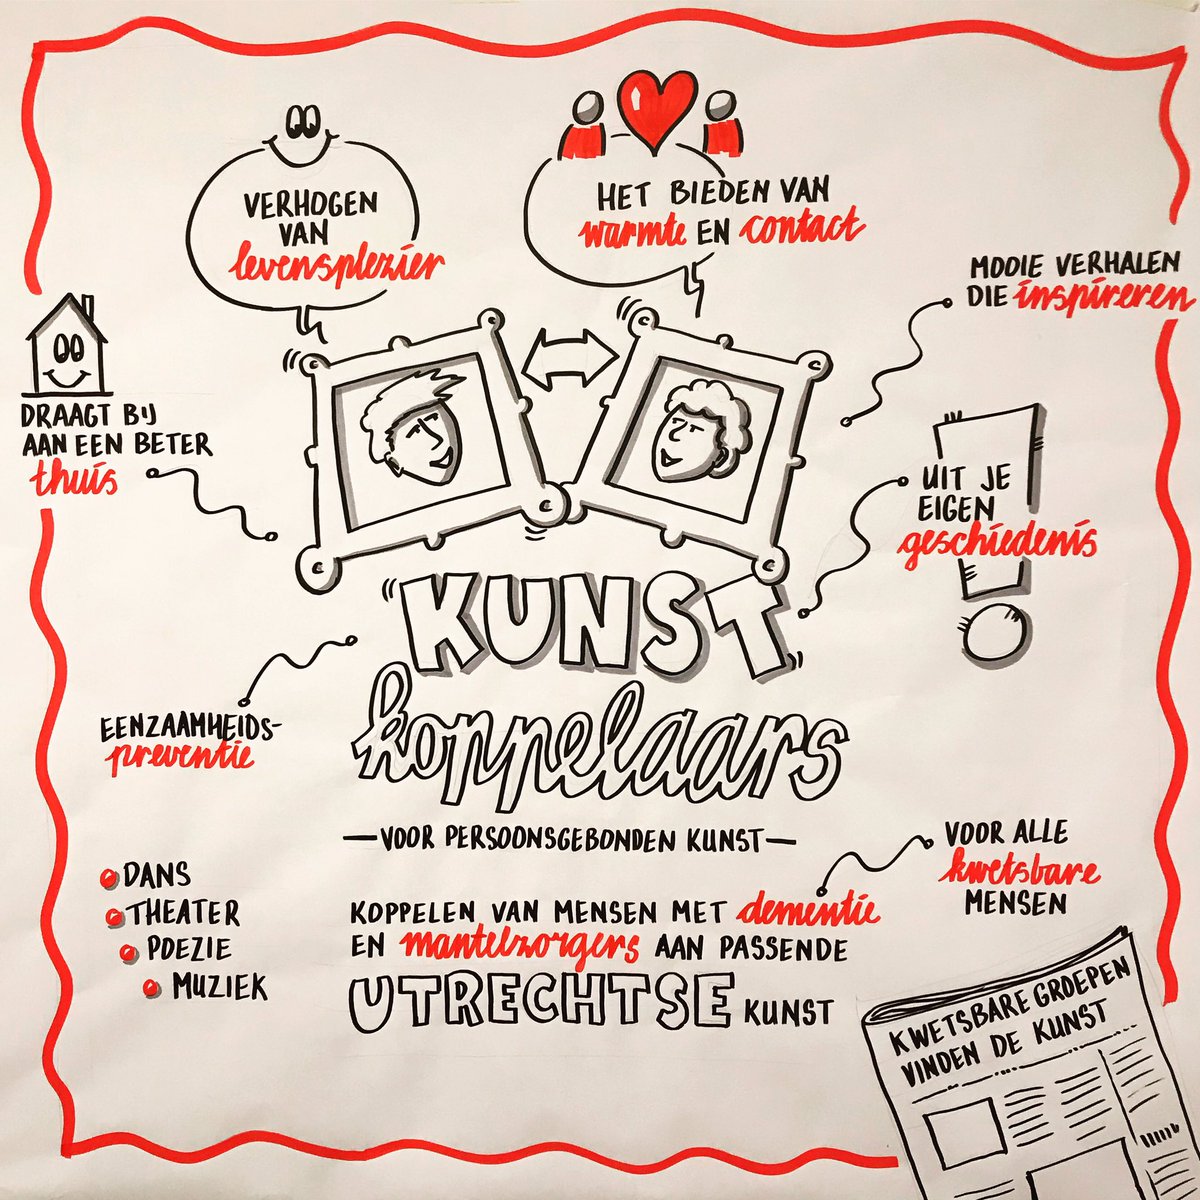 VERHOGEN
VAN
levensplezier
HET BIEDEN VAN
warmte EN contact
MOOIE VERHALEN
DIE inspireren
DRAAGT BIJ
AAN EEN BETER
thuis
UIT JE
EIGEN
geschiedenis
KUNST
koppelaars
—VOOR PERSOONSGEBONDEN KUNST—
EENZAAMHEIDS-
preventie
DANS
THEATER
POEZIE
MUZIEK
KOPPELEN VAN MENSEN MET dementie
EN mantelzorgers AAN PASSENDE
UTRECHTSE KUNST
VOOR ALLE
kwetsbare
MENSEN
KWETSBARE GROEPEN
VINDEN DE KUNST